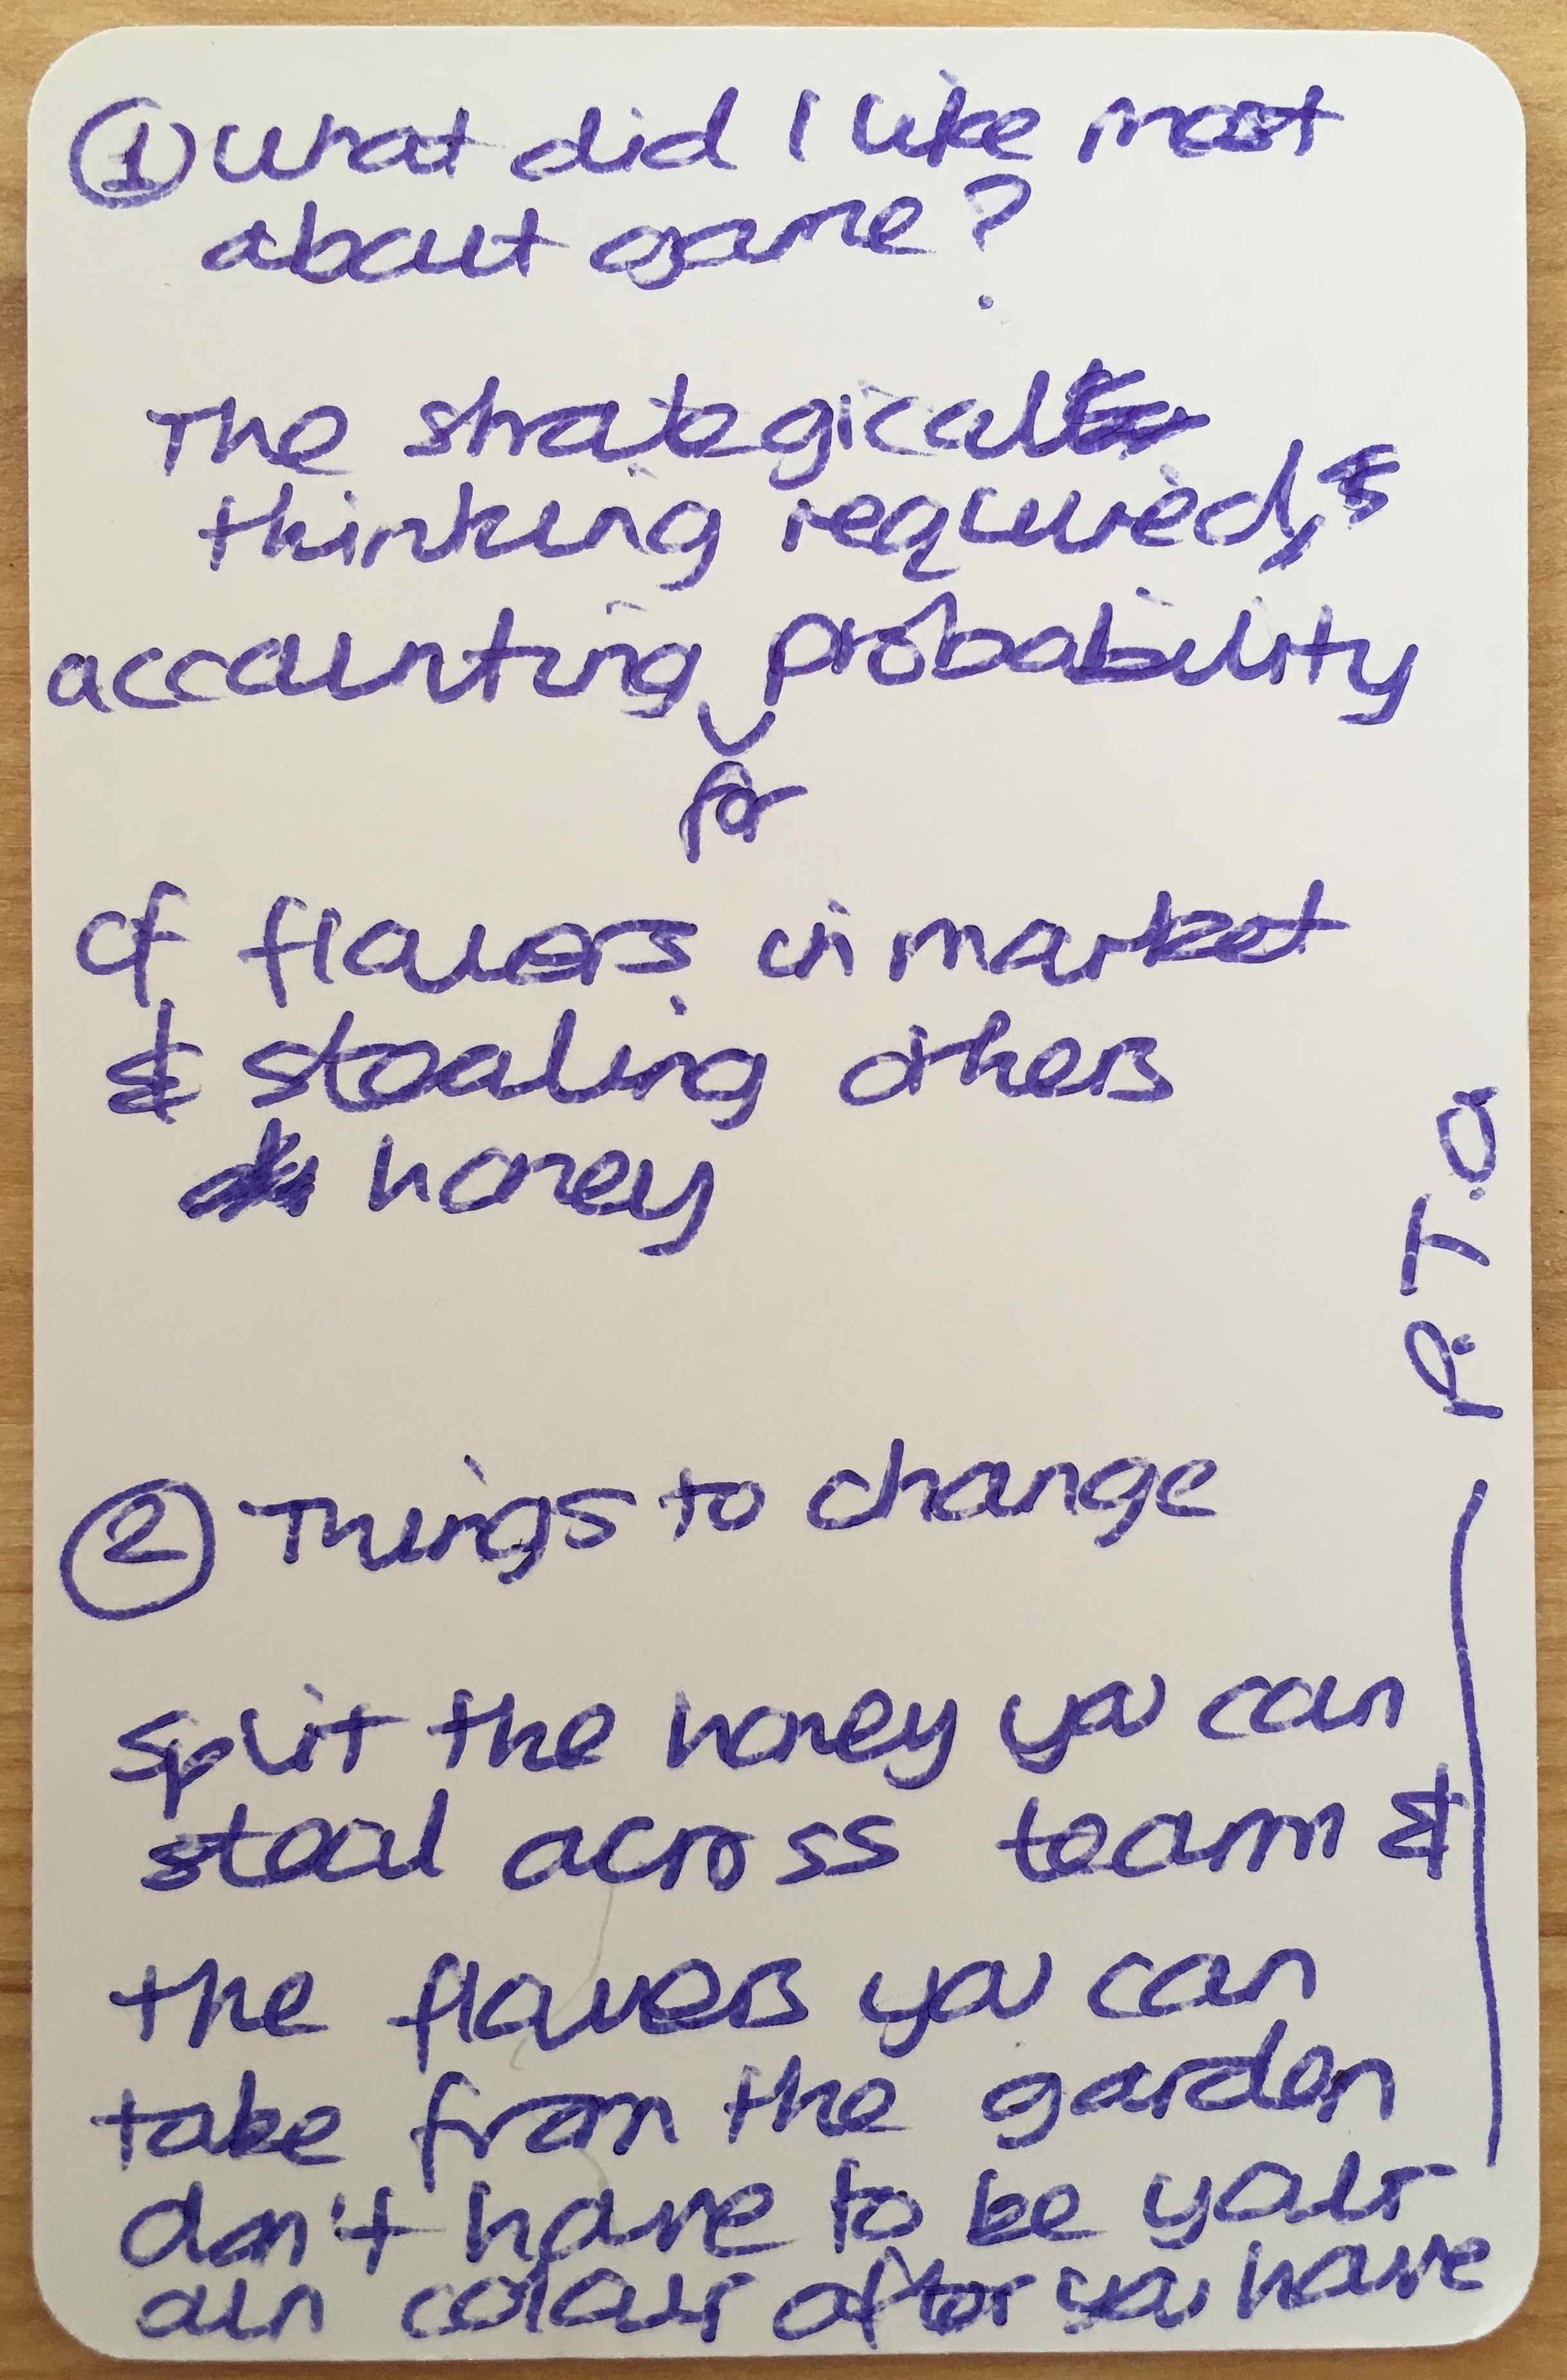 ① What did I like most
about game?
The strategical
thinking required,
accounting probability
for
of flowers in market
& stealing others
honey
P.T.O
② Things to change
Split the honey you can
steal across team &
the flowers you can
take from the garden
don't have to be your
own colour after you have